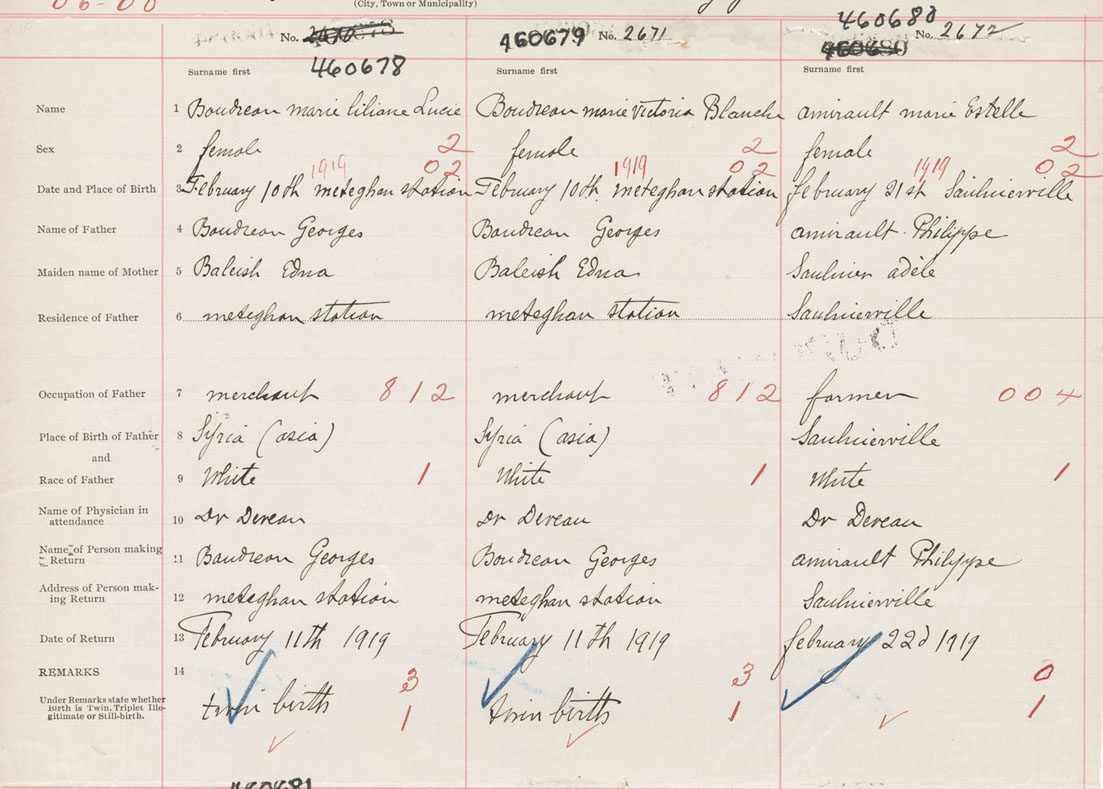 06-00
(City, Town or Municipality)
No. 460678
460679 No. 2671
460680 No. 2672
Surname first Surname first Surname first
Name 1 Boudreau marie liliane Lucie Boudreau marie Victoria Blanche amirault marie Estelle
Sex 2 female 2 female 2 female 2
1919 02 1919 02 1919 02
Date and Place of Birth 3 February 10th meteghan station February 10th meteghan station february 21st Saulnierville
Name of Father 4 Boudreau Georges Boudreau Georges amirault Philippe
Maiden name of Mother 5 Baleish Edna Baleish Edna Saulnier adèle
Residence of Father 6 meteghan station meteghan station Saulnierville
Occupation of Father 7 merchant 812 merchant 812 farmer 004
Place of Birth of Father 8 Syria (asia) Syria (asia) Saulnierville
and
Race of Father 9 White 1 White 1 White 1
Name of Physician in
attendance 10 Dr Deveau Dr Deveau Dr Deveau
Name of Person making
Return 11 Boudreau Georges Boudreau Georges amirault Philippe
Address of Person mak-
ing Return 12 meteghan station meteghan station Saulnierville
Date of Return 13 February 11th 1919 February 11th 1919 february 22d 1919
REMARKS 14 3 3 0
Under Remarks state whether
Birth is Twin, Triplet Ille-
gitimate or Still-birth. twin birth 1 twin births 1 1
460681